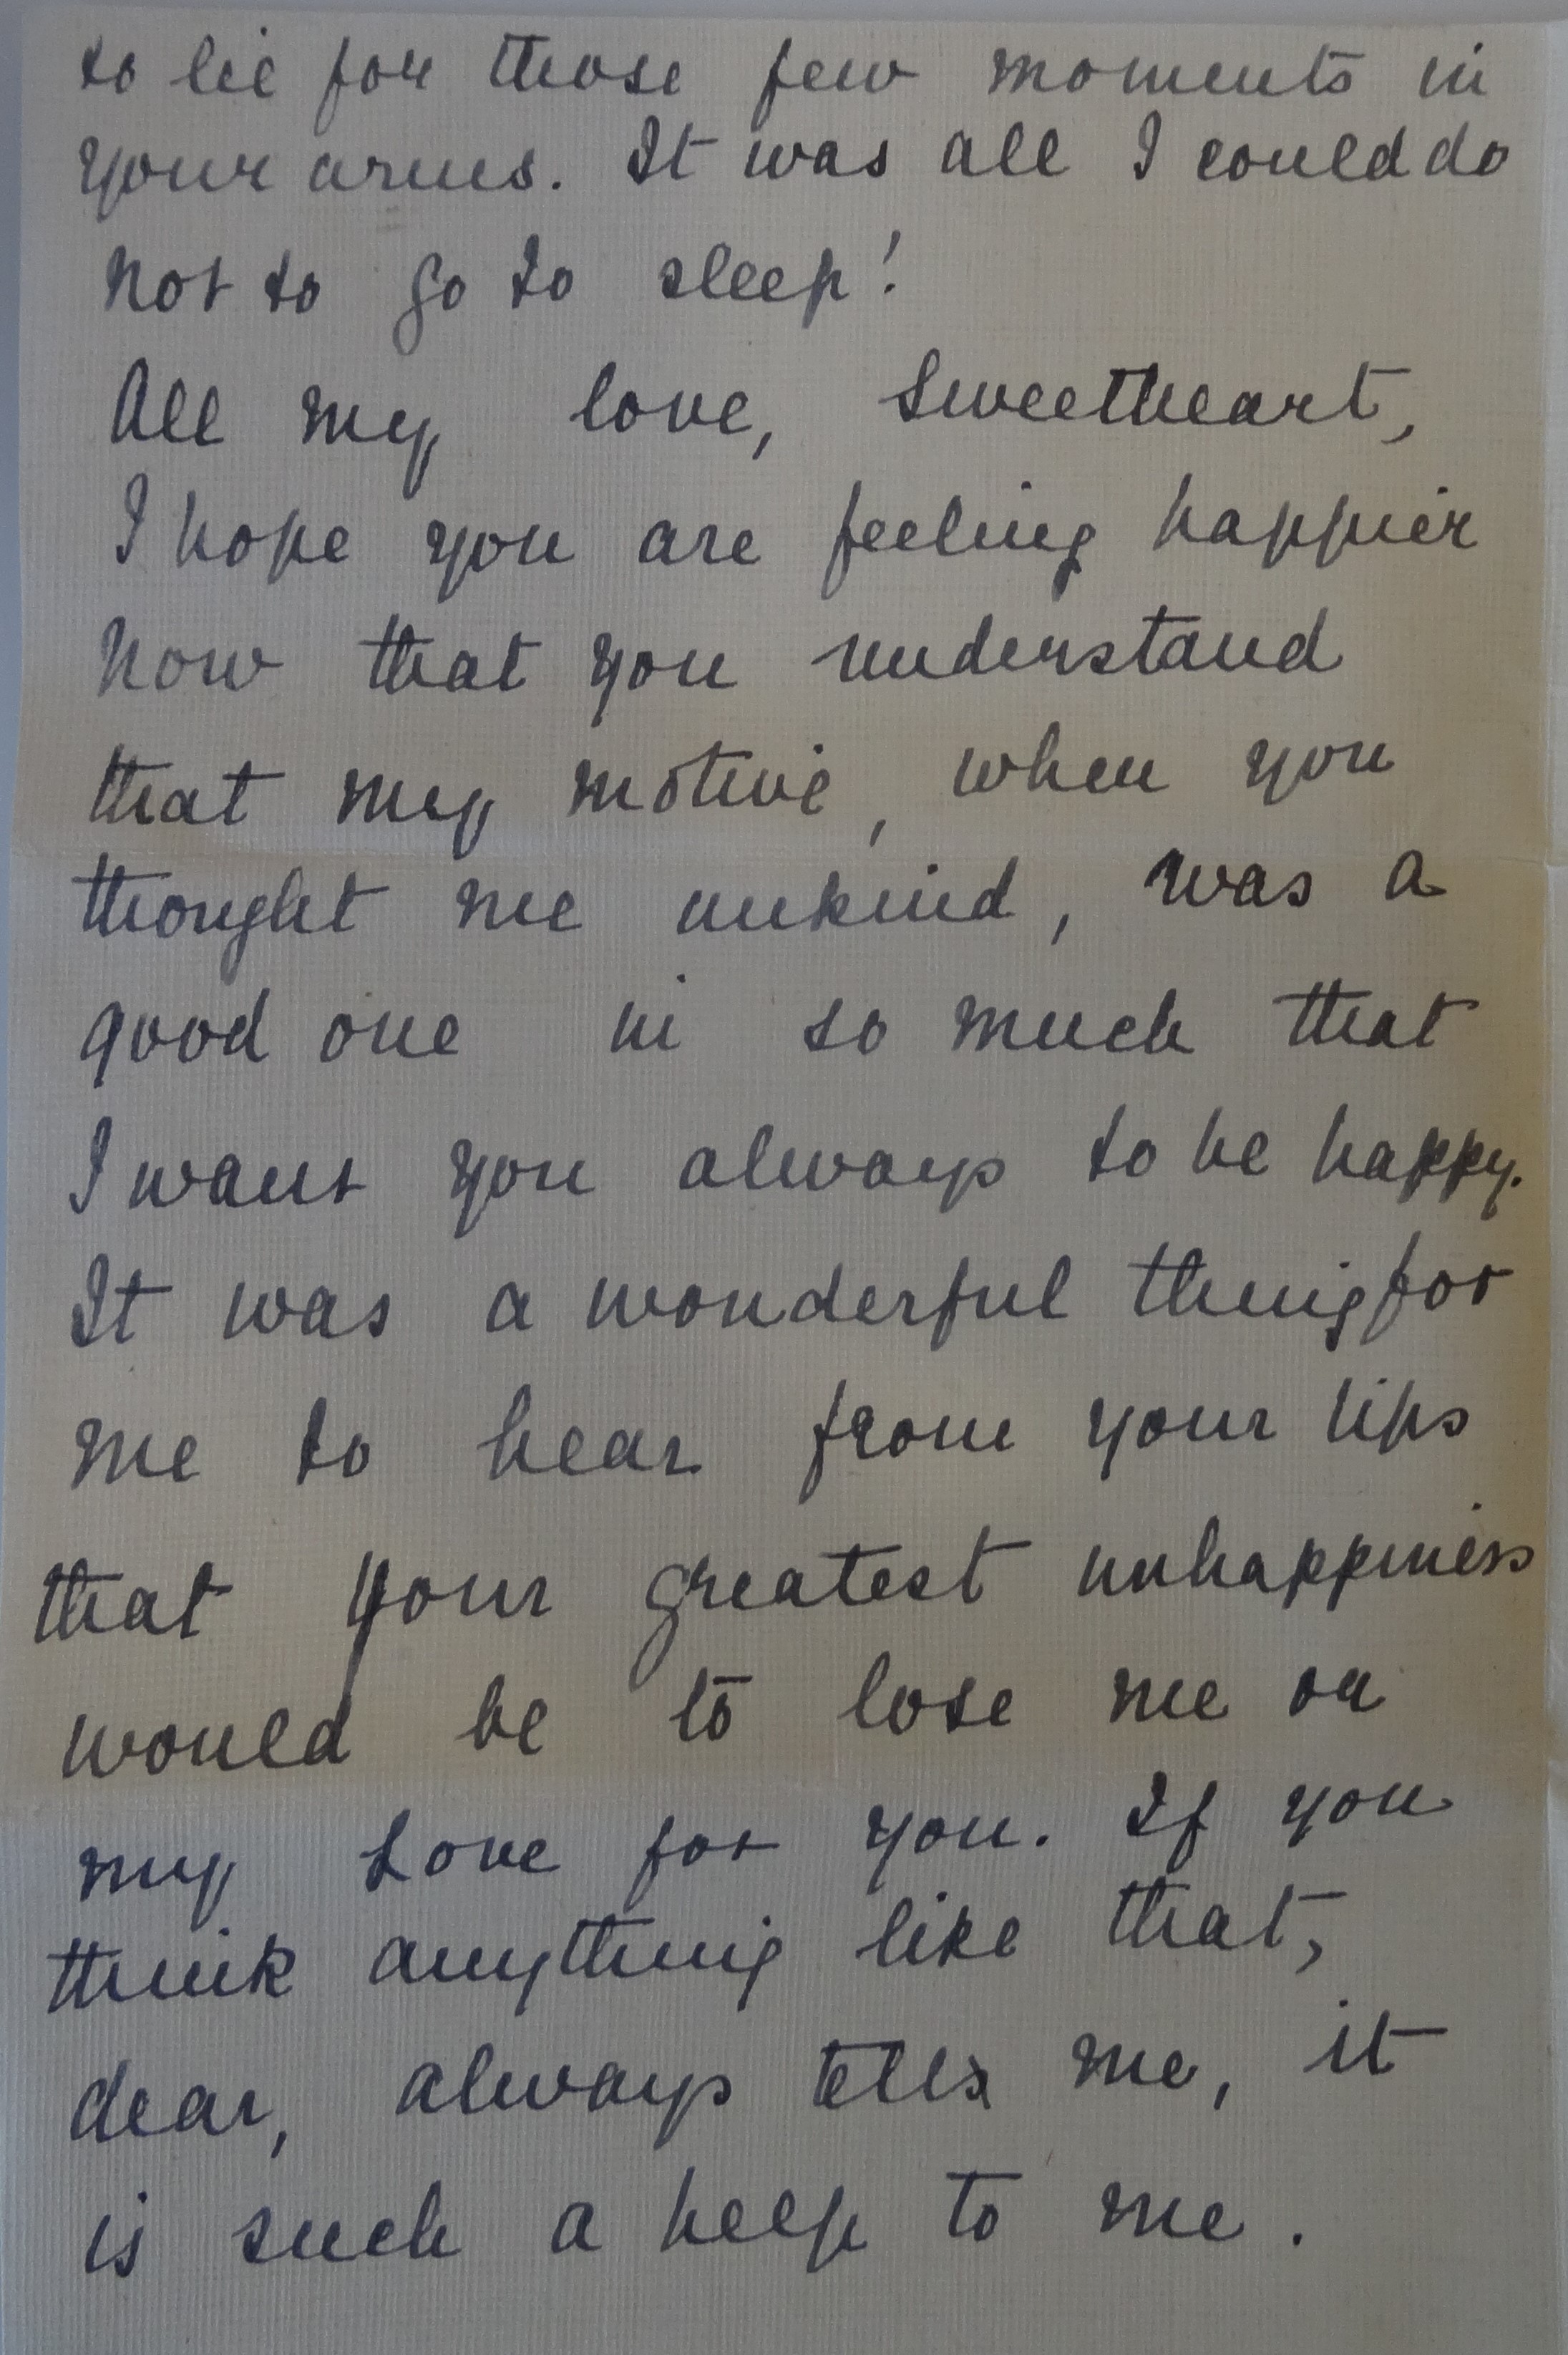 to lie for those few moments in
your arms. It was all I could do
not to go to sleep!
All my love, Sweetheart,
I hope you are feeling happier
now that you understand
that my motive, when you
thought me unkind, was a
good one in so much that
I want you always to be happy.
It was a wonderful thing for
me to hear from your lips
that your greatest unhappiness
would be to lose me or
my love for you. If you
think anything like that,
dear, always tell me, it
is such a help to me.